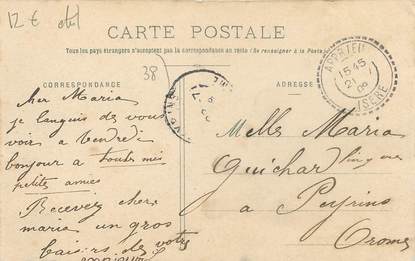 12 €
CARTE POSTALE
Tous les pays étrangers n'acceptent pas la correspondance au recto (Se renseigner à la Poste)
38
CORRESPONDANCE
ADRESSE
APPRIEU
15 45
21
09
ISERE
cher Maria
je languis de vous
voir a Vendredi
bonjour a toutes mes
petites amies
Recevez cher
maria un gros
baisers de votre
Melle Maria
Guichar
a Peyrins
Drome